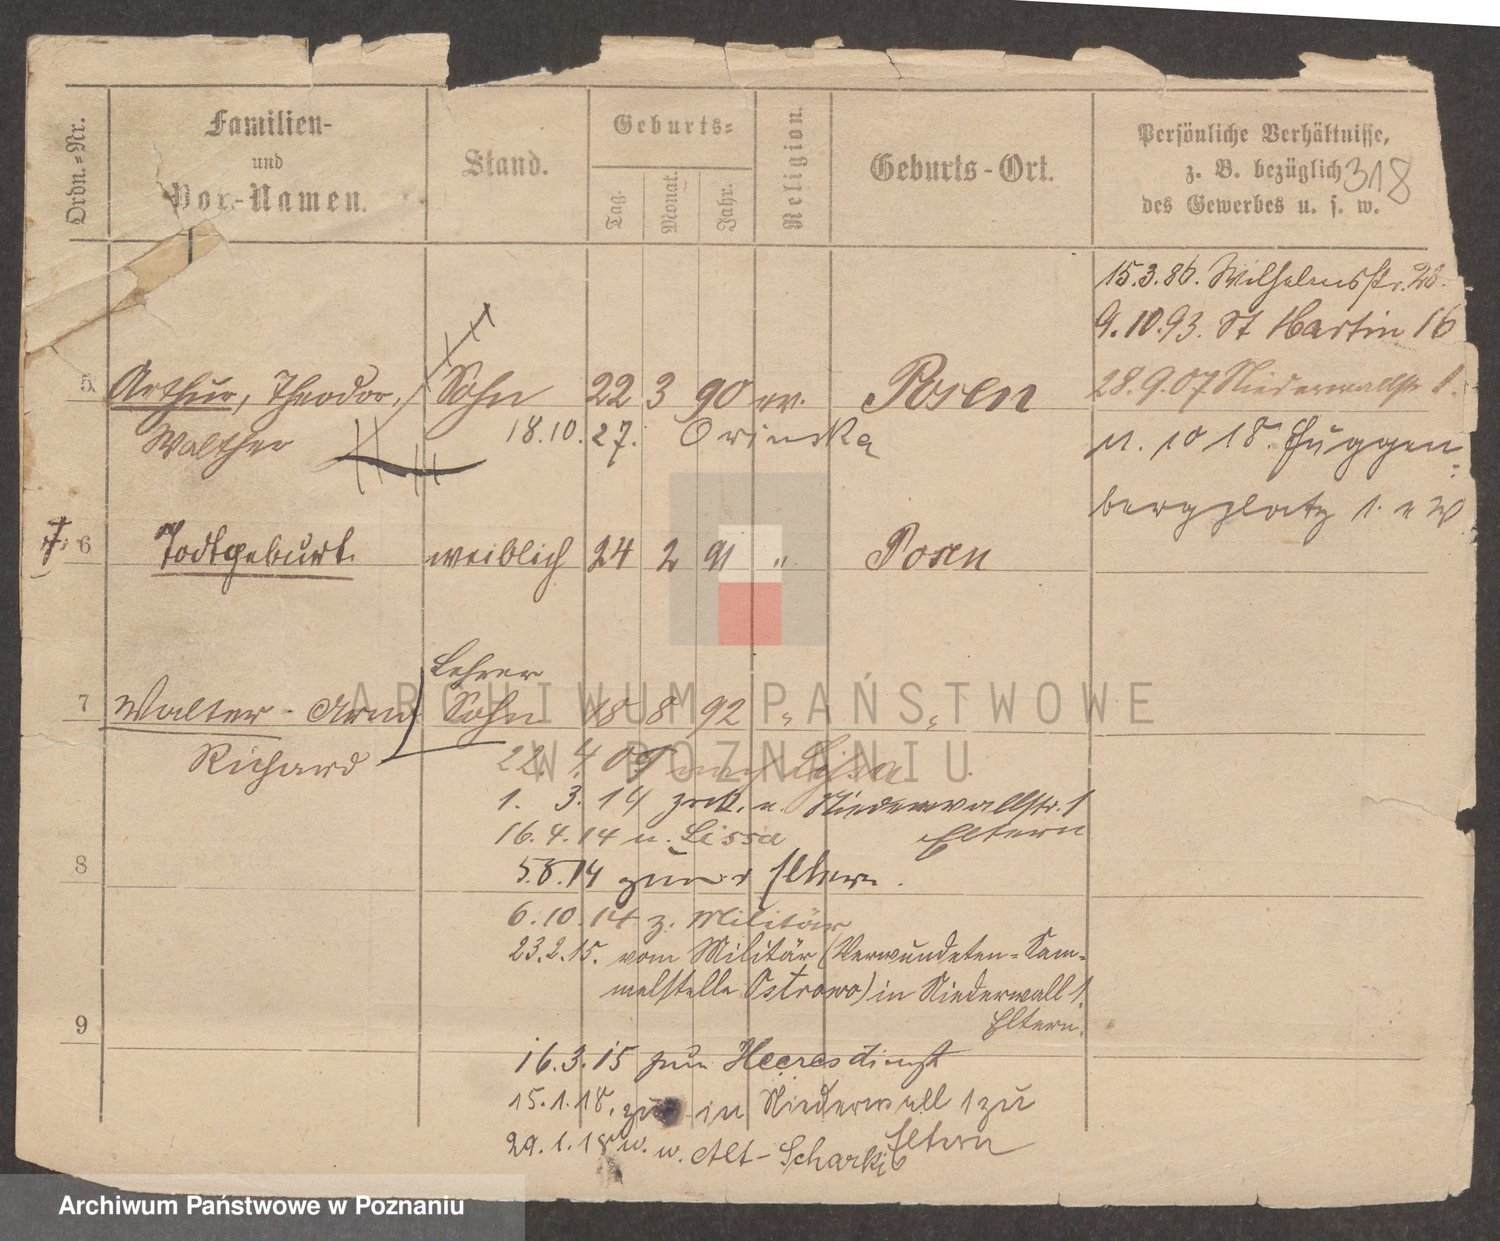 Ordn.-Nr.
Familien-
und
Vor-Namen.
Stand.
Geburts-
Tag.
Monat.
Jahr.
Religion.
Geburts-Ort.
Persönliche Verhältnisse,
z. B. bezüglich
des Gewerbes u. s. w.
318
15.3.86. Wilhelmsstr. 26.
9.10.93. St Martin 16
28.9.07 Niederwallstr. 1.
5 Arthur, Theodor, Sohn 22 3 90 ev. Posen
Walther 18.10.27.
11. 10 18. Guggen
berg platz 1.
† 6 Todtgeburt. weiblich 24 2 91 " Posen
Lehrer
7 Walter - Arno Sohn 18 8 92 " "
Richard
22. 4 09 nach Lissa
1. 3. 14 zrck. v. Niederwallstr. 1
Eltern
16.4.14 n. Lissa
8
5.8.14 Eltern.
6.10.14 z. Militär
23.2.15. vom Militär (Verwundeten-Sam-
melstelle Ostrowo) in Niederwall 1.
Eltern.
9
16.3.15 zum Heeresdienst
15.1.18. zur in Niederwall 1 zu
Eltern
29.1.18 n. Alt-
ARCHIWUM PAŃSTWOWE
W POZNANIU
Archiwum Państwowe w Poznaniu